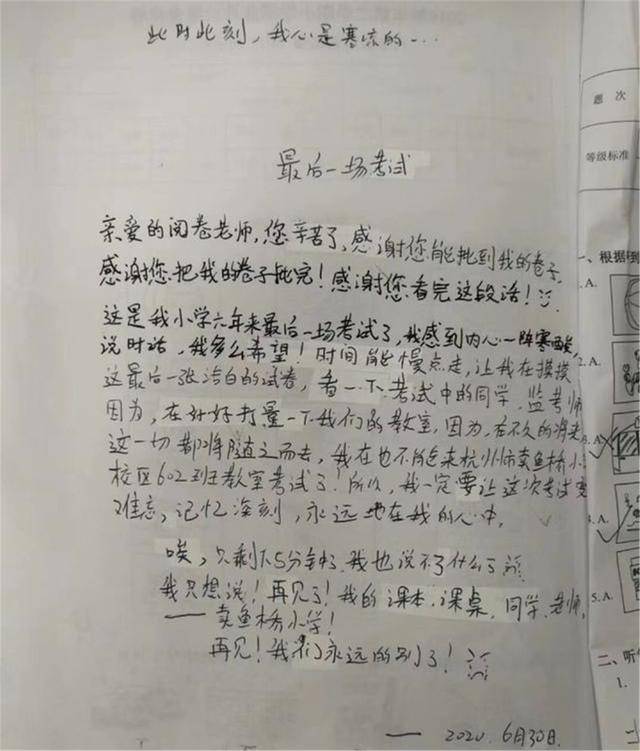 此时此刻，我心是寒凉的...
最后一场考试
亲爱的阅卷老师，您辛苦了，感谢您能批到我的卷子，
感谢您把我的卷子批完！感谢您看完这段话！
这是我小学六年来最后一场考试了，我感到内心一阵寒酸，
说时话，我多么希望！时间能慢点走，让我在摸摸
这最后一张洁白的试卷，看一下考试中的同学、监考师
因为，在好好打量一下我们的教室，因为，在不久的将来
这一切都将随之而去，我在也不能来杭州市卖鱼桥小
校区602班教室考试了！所以，我一定要让这次考试变
难忘，记忆深刻，永远地在我的心中，
唉，只剩下5分钟了，我也说不了什么了
我只想说！再见了！我的课本、课桌，同学、老师，
——卖鱼桥小学！
再见！我们永远的别了！
—— 2020，6月30日，
题 次
等级标准
一、根据
A.
2.A.
A.
A.
5.A.
二、听
1.